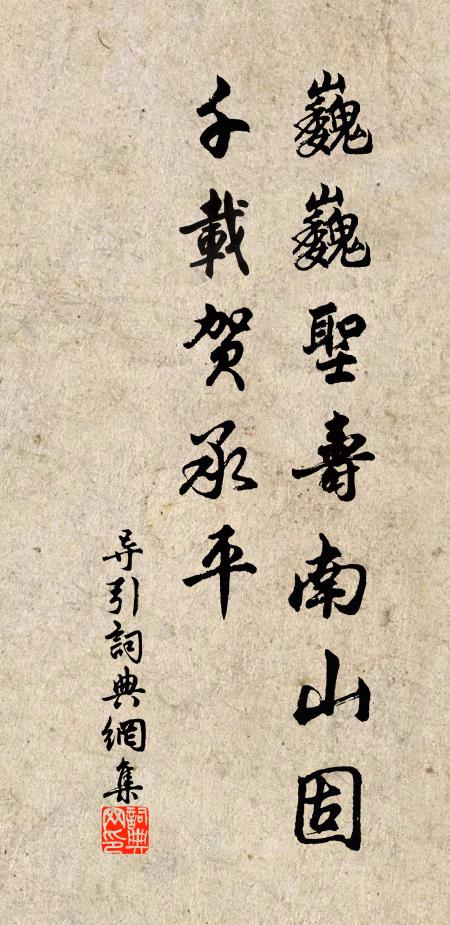 巍巍聖壽南山固
千載賀承平
导引詞典網集
詞典網印